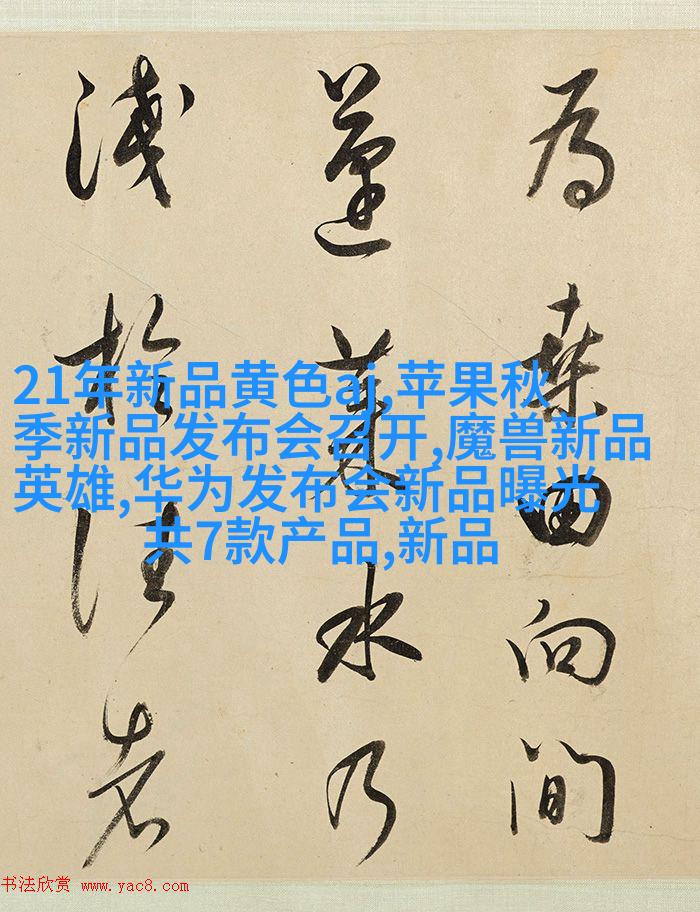 為桑田向間
蓬萊水乃
淺於往者
21年新品黄色aj,苹果秋
季新品发布会召开,魔兽新品
英雄,华为发布会新品曝光
共7款产品,新品
书法欣赏 www.yac8.com